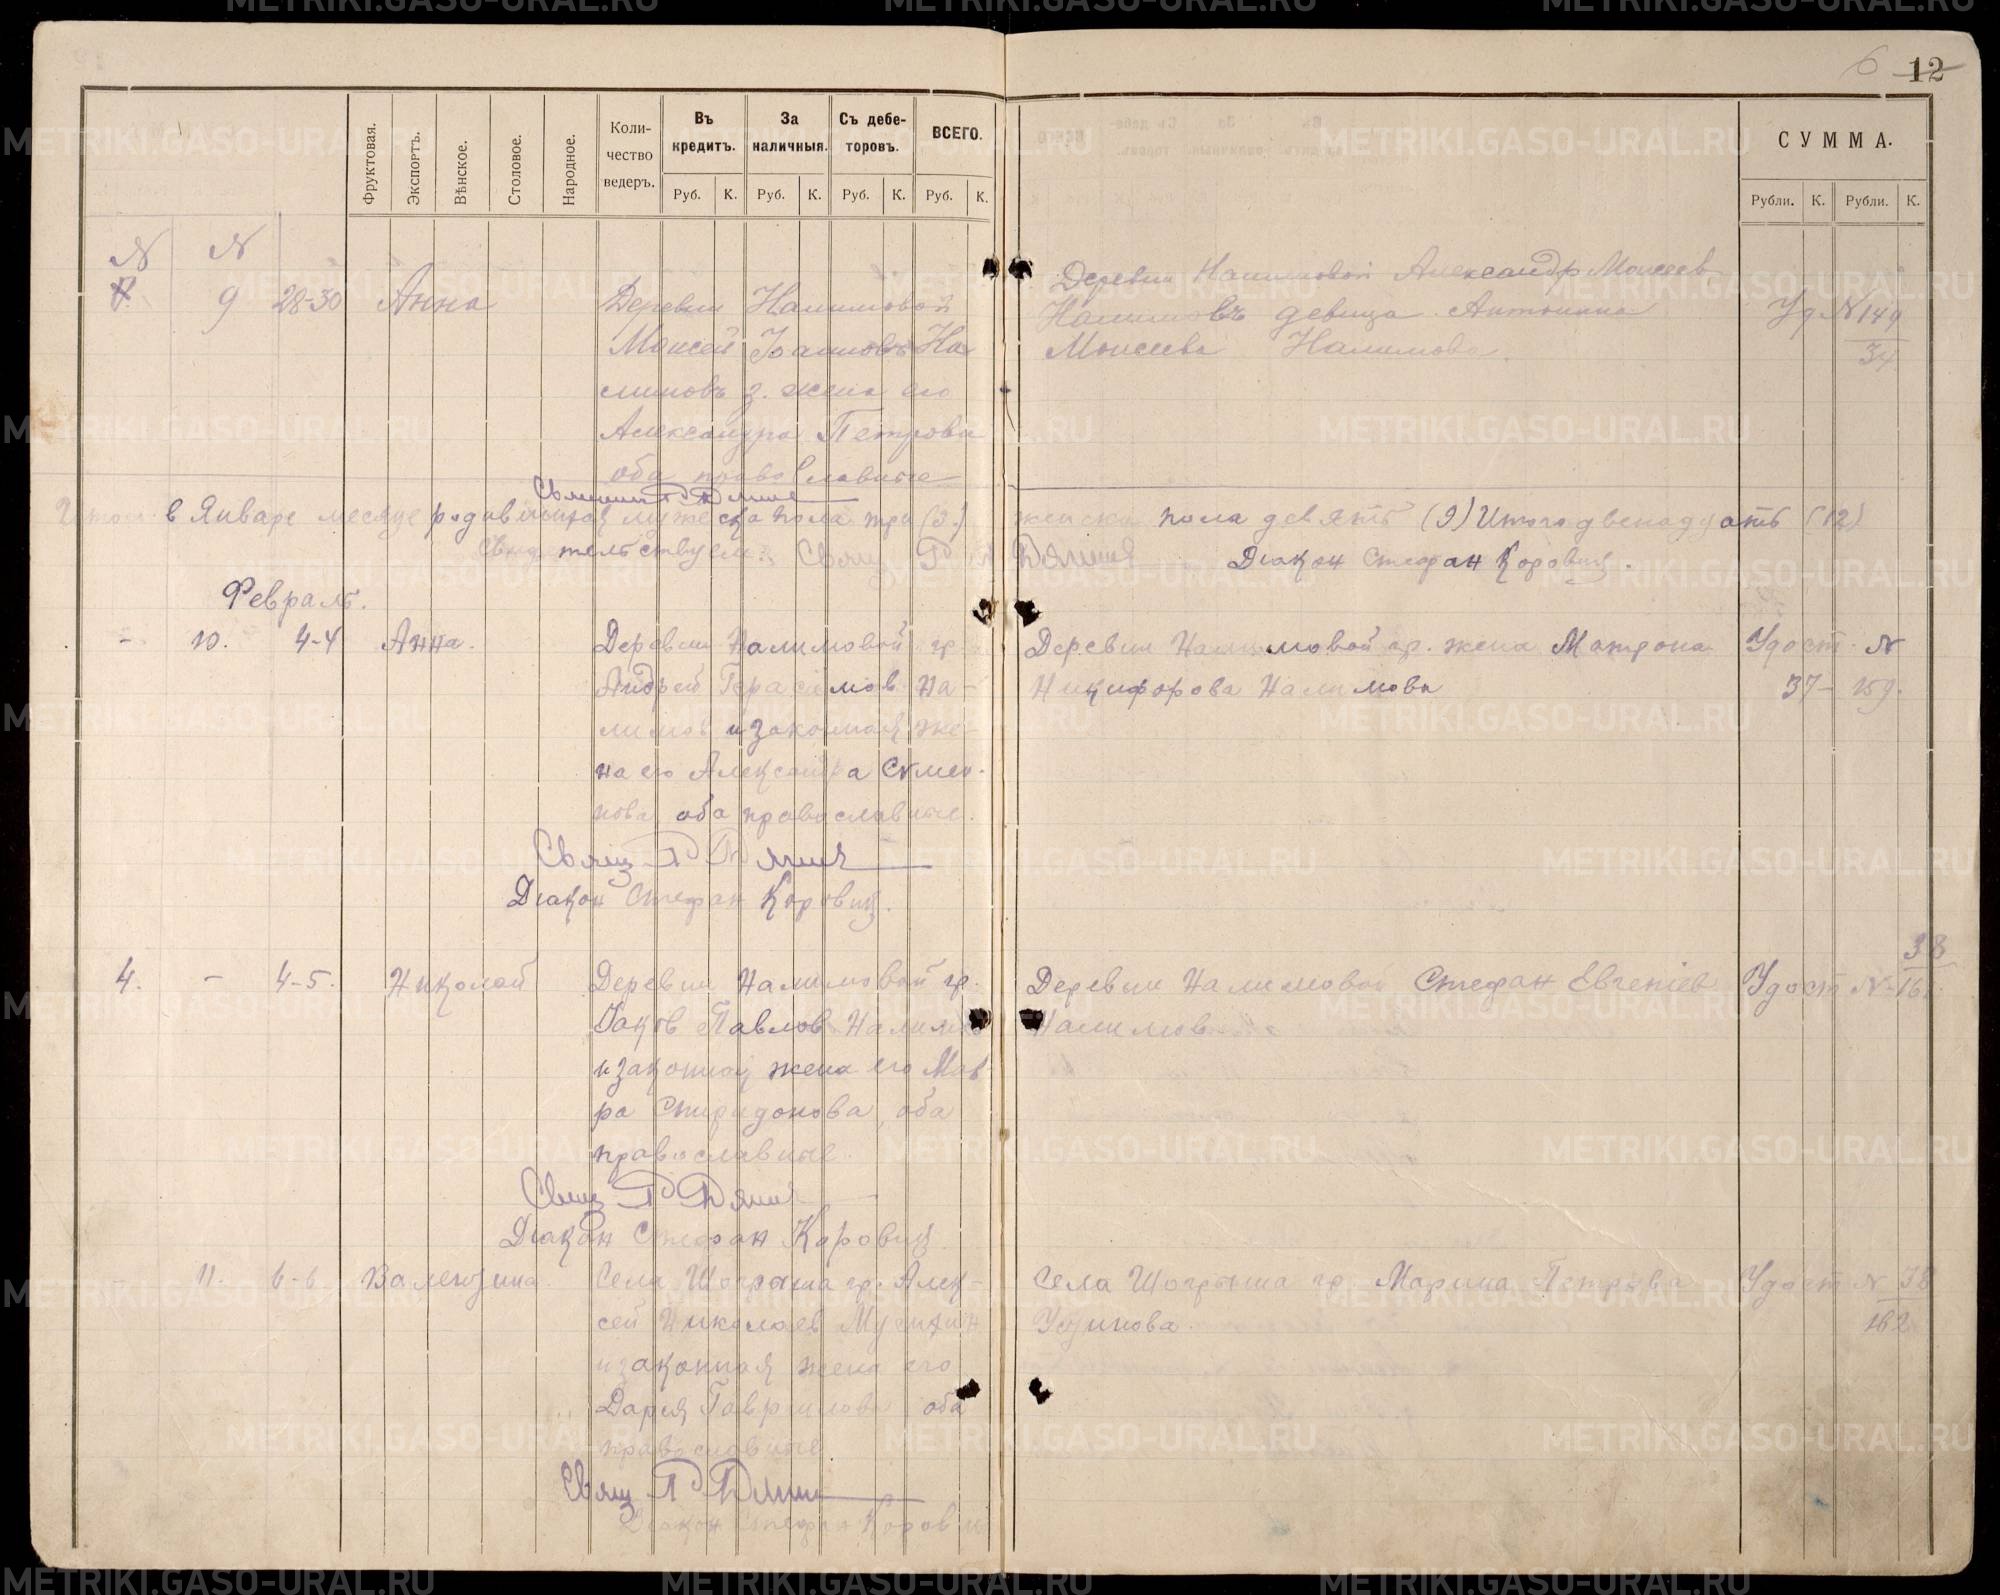 6 12
Фруктовая. Экспортъ. Вѣнское. Столовое. Народное. Коли-чество ведеръ. Въ кредитъ. За наличныя. Съ дебе-торовъ. ВСЕГО. СУММА.
Руб. К. Руб. К. Руб. К. Руб. К. Рубли. К. Рубли. К.
N N
9 28-30 Анна Деревни Налимовой Деревни Налимовой Александр Моисеев
Моисей Иоанновъ На- Налимовъ девица Антонина Уд N 149
лимовъ з. жена его Моисеева Налимова. 34
Александра Петрова
оба православные
Священник
Итого в Январе месяце родившихся мужеска пола три (3.) женска пола девять (9) Итого двенадцать (12)
Свидетельствуем: Свящ Диакон Стефан Коровин.
Февраль.
- 10. 4-4 Анна. Деревни Налимовой гр. Деревни Налимовой гр. жена Матрона Удост. N
Андрей Герасимов На- Никифорова Налимова 37- 159.
лимов и законная же-
на его Александра Семе-
нова оба православные.
Свящ
Диакон Стефан Коровин.
4. - 4-5. Николай Деревни Налимовой гр. Деревни Налимовой Стефан Евгениев Удост N 38
Иаков Павлов Налимов Налимов.
и законная жена его Мав-
ра Спиридонова, оба
православные.
Свящ
Диакон Стефан Коровин
- 11. 6-6 Валентина Села Шогрыша гр. Алек- Села Шогрыша гр. Марина Петрова Удост N 38
сей Николаев Мусихин Устинова. 162
и законная жена его
Дария Гаврилова оба
православные.
Свящ
Диакон Стефан Коровин
METRIKI.GASO-URAL.RU